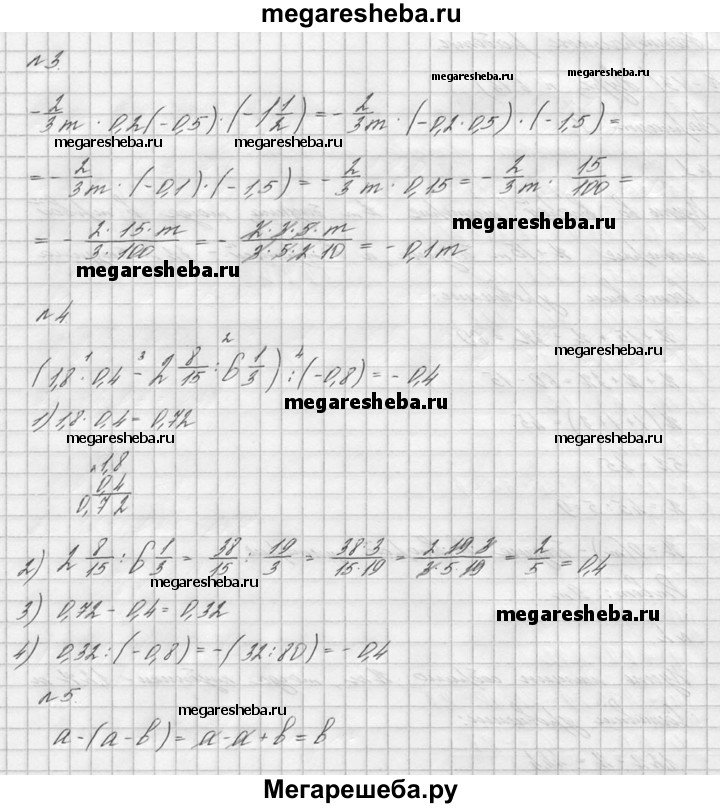 megaresheba.ru
№3.
megaresheba.ru
megaresheba.ru
-2/3 m · 0,2(-0,5) · (-1 1/2) = -2/3 m · (-0,2 · 0,5) · (-1,5) =
megaresheba.ru
megaresheba.ru
= -2/3 m · (-0,1) · (-1,5) = -2/3 m · 0,15 = -2/3 m · 15/100 =
megaresheba.ru
= - 2 · 15 · m / 3 · 100 = - 2 · 3 · 5 · m / 3 · 5 · 2 · 10 = - 0,1m
megaresheba.ru
№4
megaresheba.ru
(1,8 · 0,4 - 2 8/15 : 6 1/3) : (-0,8) = - 0,4
megaresheba.ru
1) 1,8 · 0,4 = 0,72
megaresheba.ru
megaresheba.ru
×1,8
0,4
0,72
2) 2 8/15 : 6 1/3 = 38/15 : 19/3 = 38·3/15·19 = 2·19·3/3·5·19 = 2/5 = 0,4
megaresheba.ru
3) 0,72 - 0,4 = 0,32
megaresheba.ru
4) 0,32 : (-0,8) = -(32:80) = - 0,4
№5.
megaresheba.ru
a-(a-b) = a-a+b = b
megaresheba.ru
Мегарешеба.ру